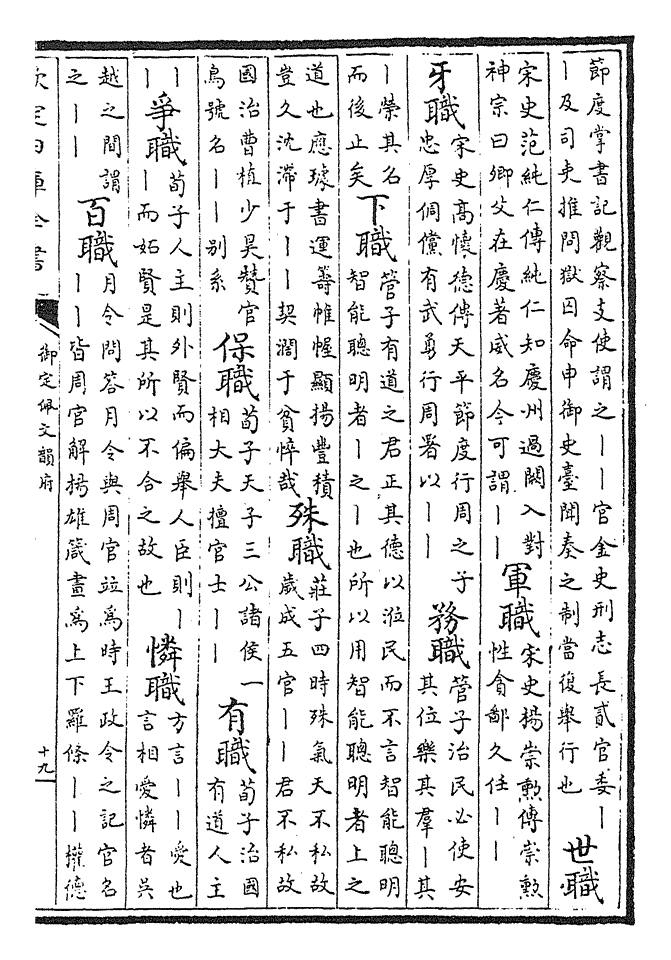 節度掌書記觀察支使謂之｜｜官金史刑志長貳官委｜
｜及司吏推問獄囚命申御史臺聞奏之制當後舉行也
世職
宋史范純仁傳純仁知慶州過闕入對
神宗曰卿父在慶著威名今可謂｜｜
軍職
宋史楊崇勲傳崇勲
性貪鄙久任｜｜
牙職
宋史高懷德傳天平節度行周之子
忠厚倜儻有武勇行周署以｜｜
務職
管子治民必使安
其位樂其羣｜其
｜榮其名
而後止矣
下職
管子有道之君正其德以涖民而不言智能聰明
智能聰明者｜之｜也所以用智能聰明者上之
道也應璩書運籌帷幄顯揚豐積
豈久沈滯于｜｜契濶于貧悴哉
殊職
莊子四時殊氣天不私故
歲成五官｜｜君不私故
國治曹植少昊贊官
鳥號名｜｜别系
保職
荀子天子三公諸侯一
相大夫擅官士｜｜
有職
荀子治國
有道人主
｜
｜
爭職
荀子人主則外賢而偏舉人臣則｜
｜而妬賢是其所以不合之故也
憐職
方言｜｜愛也
言相愛憐者吳
越之間謂
之｜｜
百職
月令問答月令與周官竝為時王政令之記官名
｜｜皆周官解揚雄箴畫為上下羅條｜｜權德
欽定四庫全書
御定佩文韻府
十九